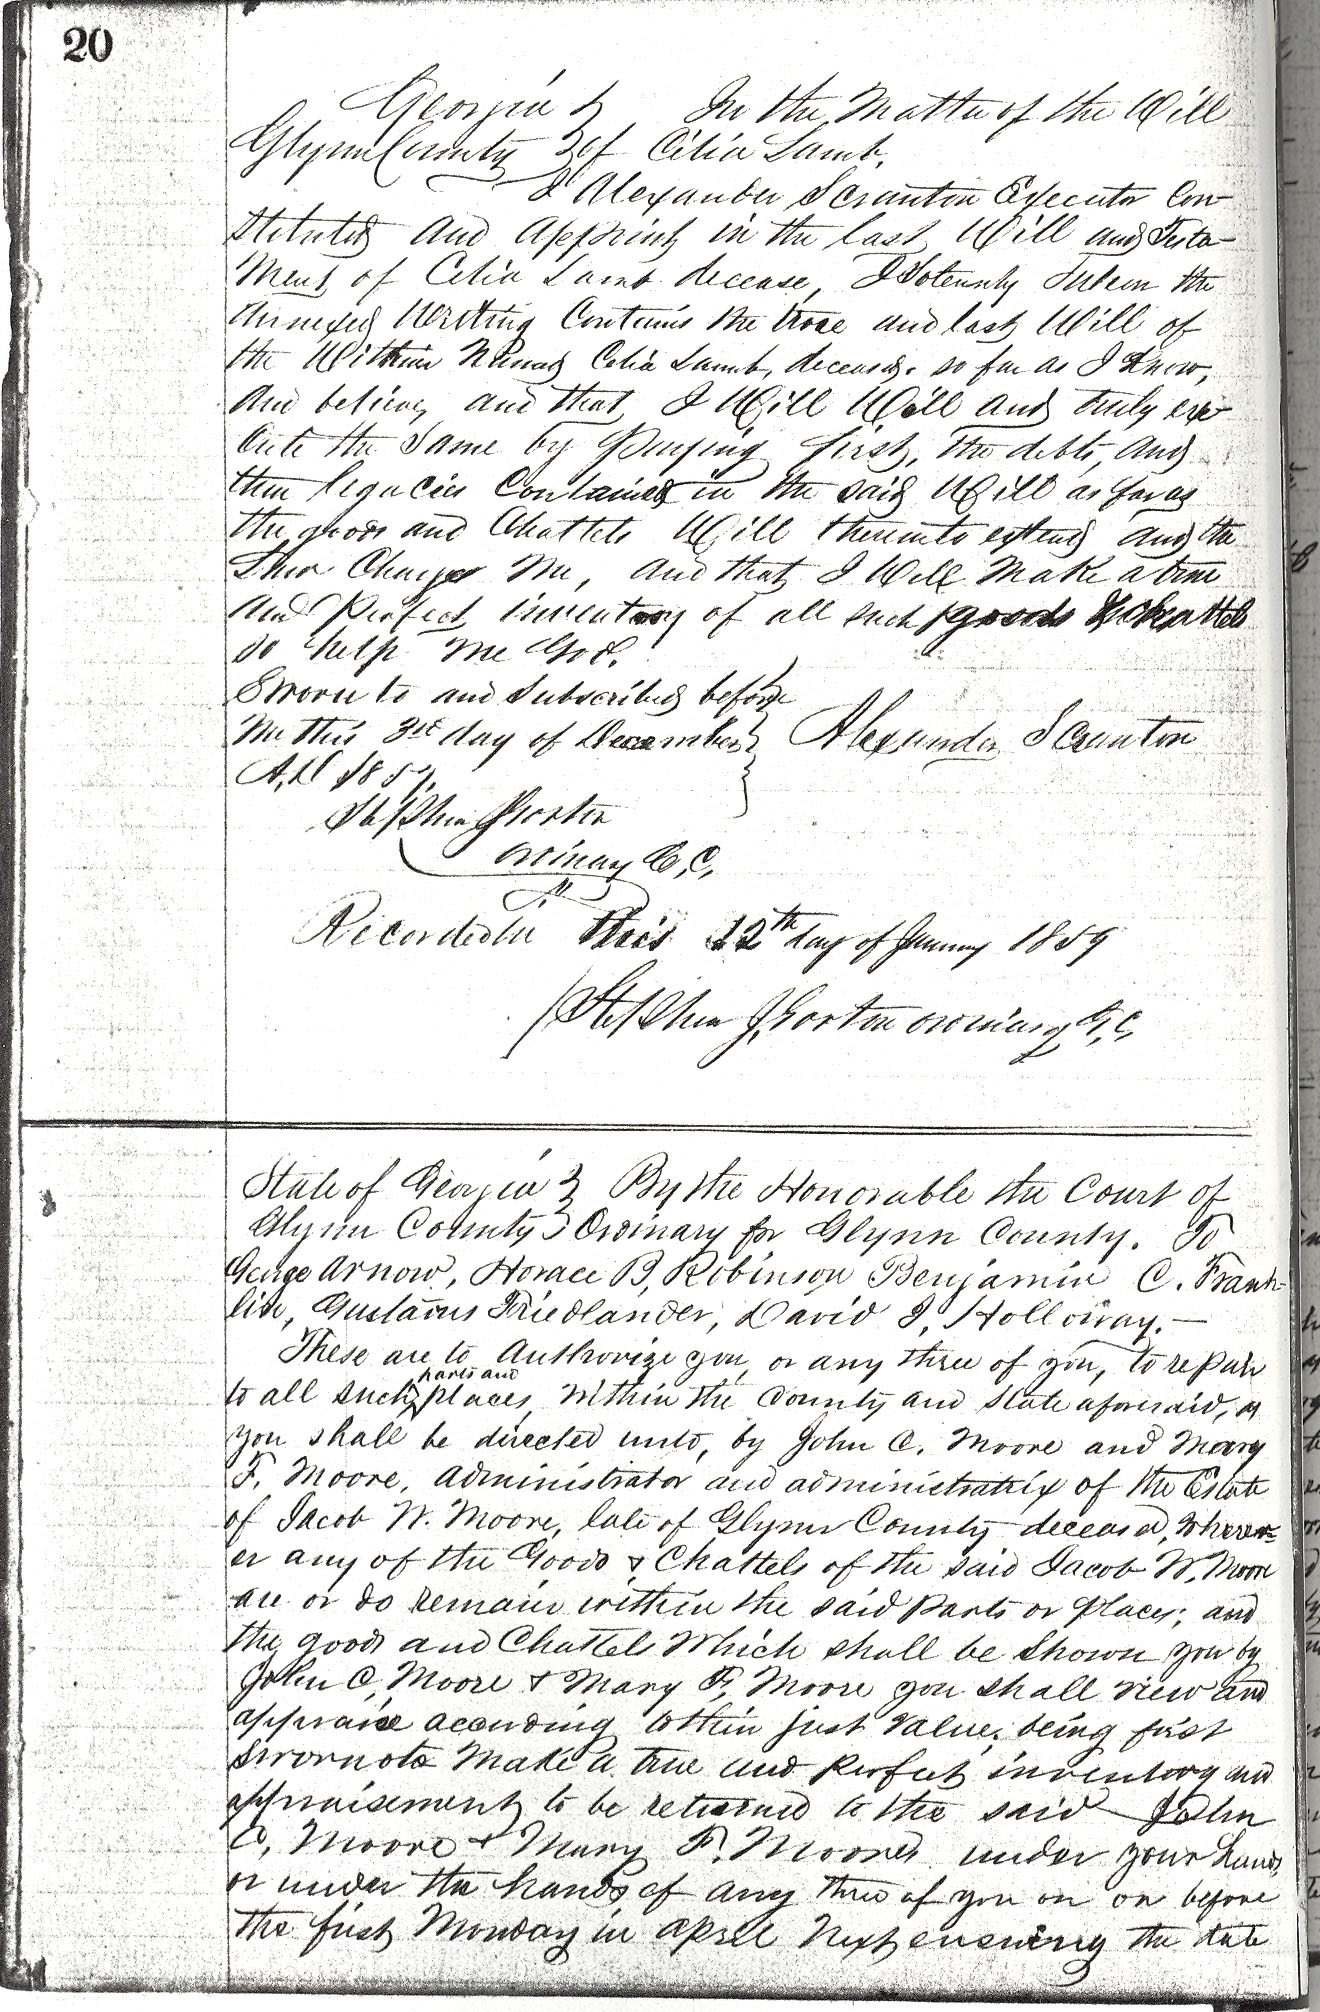 20
Georgia } In the Matter of the Will
Glynn County } of Celia Lamb.
I Alexander Scranton Executor Con-
stituted and appoint in the last Will and Testa-
ment of Celia Lamb decease, I Solemnly Swear the
annexed Writing Contains the true and last Will of
the Within Named Celia Lamb, deceased. so far as I Know,
and believe, and that I Will Well and truly exe
cute the Same by Paying first, the debts, and
then legacies Contained in the said Will as far as
the goods and Chattels Will thereunto extend and the
Law Charge Me, and that I Will Make a true
and Perfect inventory of all such goods & chattels
so help Me God.
Sworn to and Subscribed before
Me this 3rd day of December } Alexander Scranton
A,D 185
Stephen J Gorton
ordinary G,C,
Recorded this 22th day of January 1859
Stephen J, Gorton ordinary G,C,
State of Georgia } By the Honorable the Court of
Glynn County } Ordinary for Glynn County. To
George Arnow, Horace B, Robinson Benjamin C. Frank-
lin, Gustavus Friedlander, David J, Holloway.—
These are to Authorize you, or any three of you, to repair
parts and
to all such places, within the County and State aforesaid, as
you shall be directed unto, by John C. Moore and Mary
F. Moore, administrator and administratrix of the Estate
of Jacob W. Moore, late of Glynn County deceased, wherev=
er any of the Goods & Chattels of the said Jacob W, Moore
are or do remain within the said Parts or places; and
the goods and Chattels Which shall be Shown you by
John C, Moore & Mary F, Moore you shall view and
appraise according to their just value; being first
sworn to Make a true and Perfect inventory and
appraisement to be returned to the said John
C, Moore & Mary F. Moore under your hands,
or under the hands of any three of you on or before
the first Monday in April Next ensuing the date